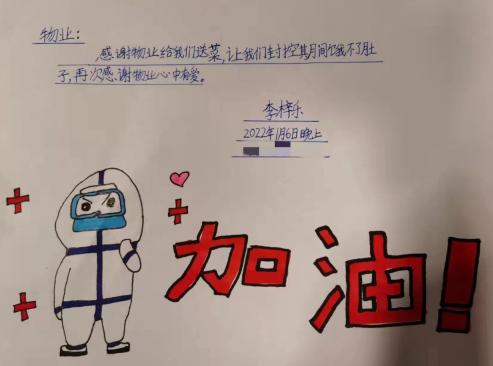 物业:
感谢物业给我们送菜,让我们封控其月间饿不了肚
子,再次感谢物业心中有爱。
李梓乐
2022年1月6日晚上
加油!